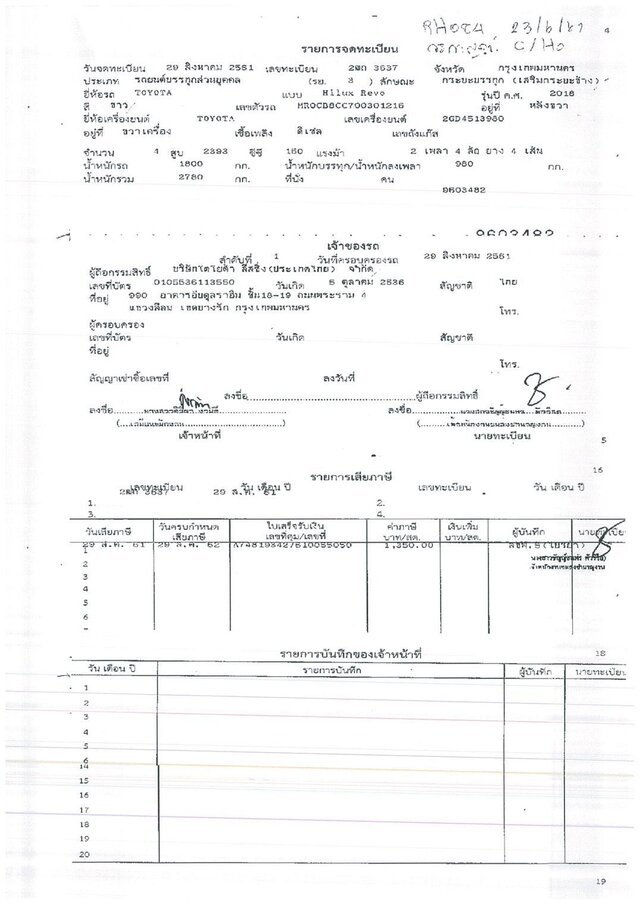 RH084 23/6/61 4
C/Ho
รายการจดทะเบียน
วันจดทะเบียน 29 สิงหาคม 2561 เลขทะเบียน 2ฒถ 3637 จังหวัด กรุงเทพมหานคร
ประเภท รถยนต์บรรทุกส่วนบุคคล (รย. 3 ) ลักษณะ กระบะบรรทุก (เสริมกระบะข้าง)
ยี่ห้อรถ TOYOTA แบบ Hilux Revo รุ่นปี ค.ศ. 2018
สี ขาว เลขตัวรถ MR0CB8CC700301216 อยู่ที่ หลังขวา
ยี่ห้อเครื่องยนต์ TOYOTA เลขเครื่องยนต์ 2GD4513980
อยู่ที่ ขวาเครื่อง เชื้อเพลิง ดีเซล เลขถังแก๊ส
จำนวน 4 สูบ 2393 ซีซี 150 แรงม้า 2 เพลา 4 ล้อ ยาง 4 เส้น
น้ำหนักรถ 1800 กก. น้ำหนักบรรทุก/น้ำหนักลงเพลา 980 กก.
น้ำหนักรวม 2780 กก. ที่นั่ง คน
9603482
9603482
เจ้าของรถ
ลำดับที่ 1 วันที่ครอบครองรถ 29 สิงหาคม 2561
ผู้ถือกรรมสิทธิ์ บริษัทโตโยต้า ลีสซิ่ง(ประเทศไทย) จำกัด
เลขที่บัตร 0105536113550 วันเกิด 5 ตุลาคม 2536 สัญชาติ ไทย
ที่อยู่ 990 อาคารอับดุลราฮิม ชั้น18-19 ถนนพระราม 4
แขวงสีลม เขตบางรัก กรุงเทพมหานคร โทร.
ผู้ครอบครอง
เลขที่บัตร วันเกิด สัญชาติ
ที่อยู่
โทร.
สัญญาเช่าซื้อเลขที่ ลงวันที่
ลงชื่อ ผู้ถือกรรมสิทธิ์
ลงชื่อ ลงชื่อ
เจ้าหน้าที่ นายทะเบียน
5
16
รายการเสียภาษี
เลขทะเบียน วัน เดือน ปี เลขทะเบียน วัน เดือน ปี
2ฒถ 3637 29 ส.ค. 61
1. 2.
3. 4.
วันเสียภาษี วันครบกำหนดเสียภาษี ใบเสร็จรับเงิน เลขที่คุม/เลขที่ ค่าภาษี บาท/สต. เงินเพิ่ม บาท/สต. ผู้บันทึก นายทะเบียน
29 ส.ค. 61 29 ส.ค. 62 1,350.00
1
2
3
4
5
6
รายการบันทึกของเจ้าหน้าที่ 18
วัน เดือน ปี รายการบันทึก ผู้บันทึก นายทะเบียน
1
2
3
4
5
6
14
15
16
17
18
19
20
19